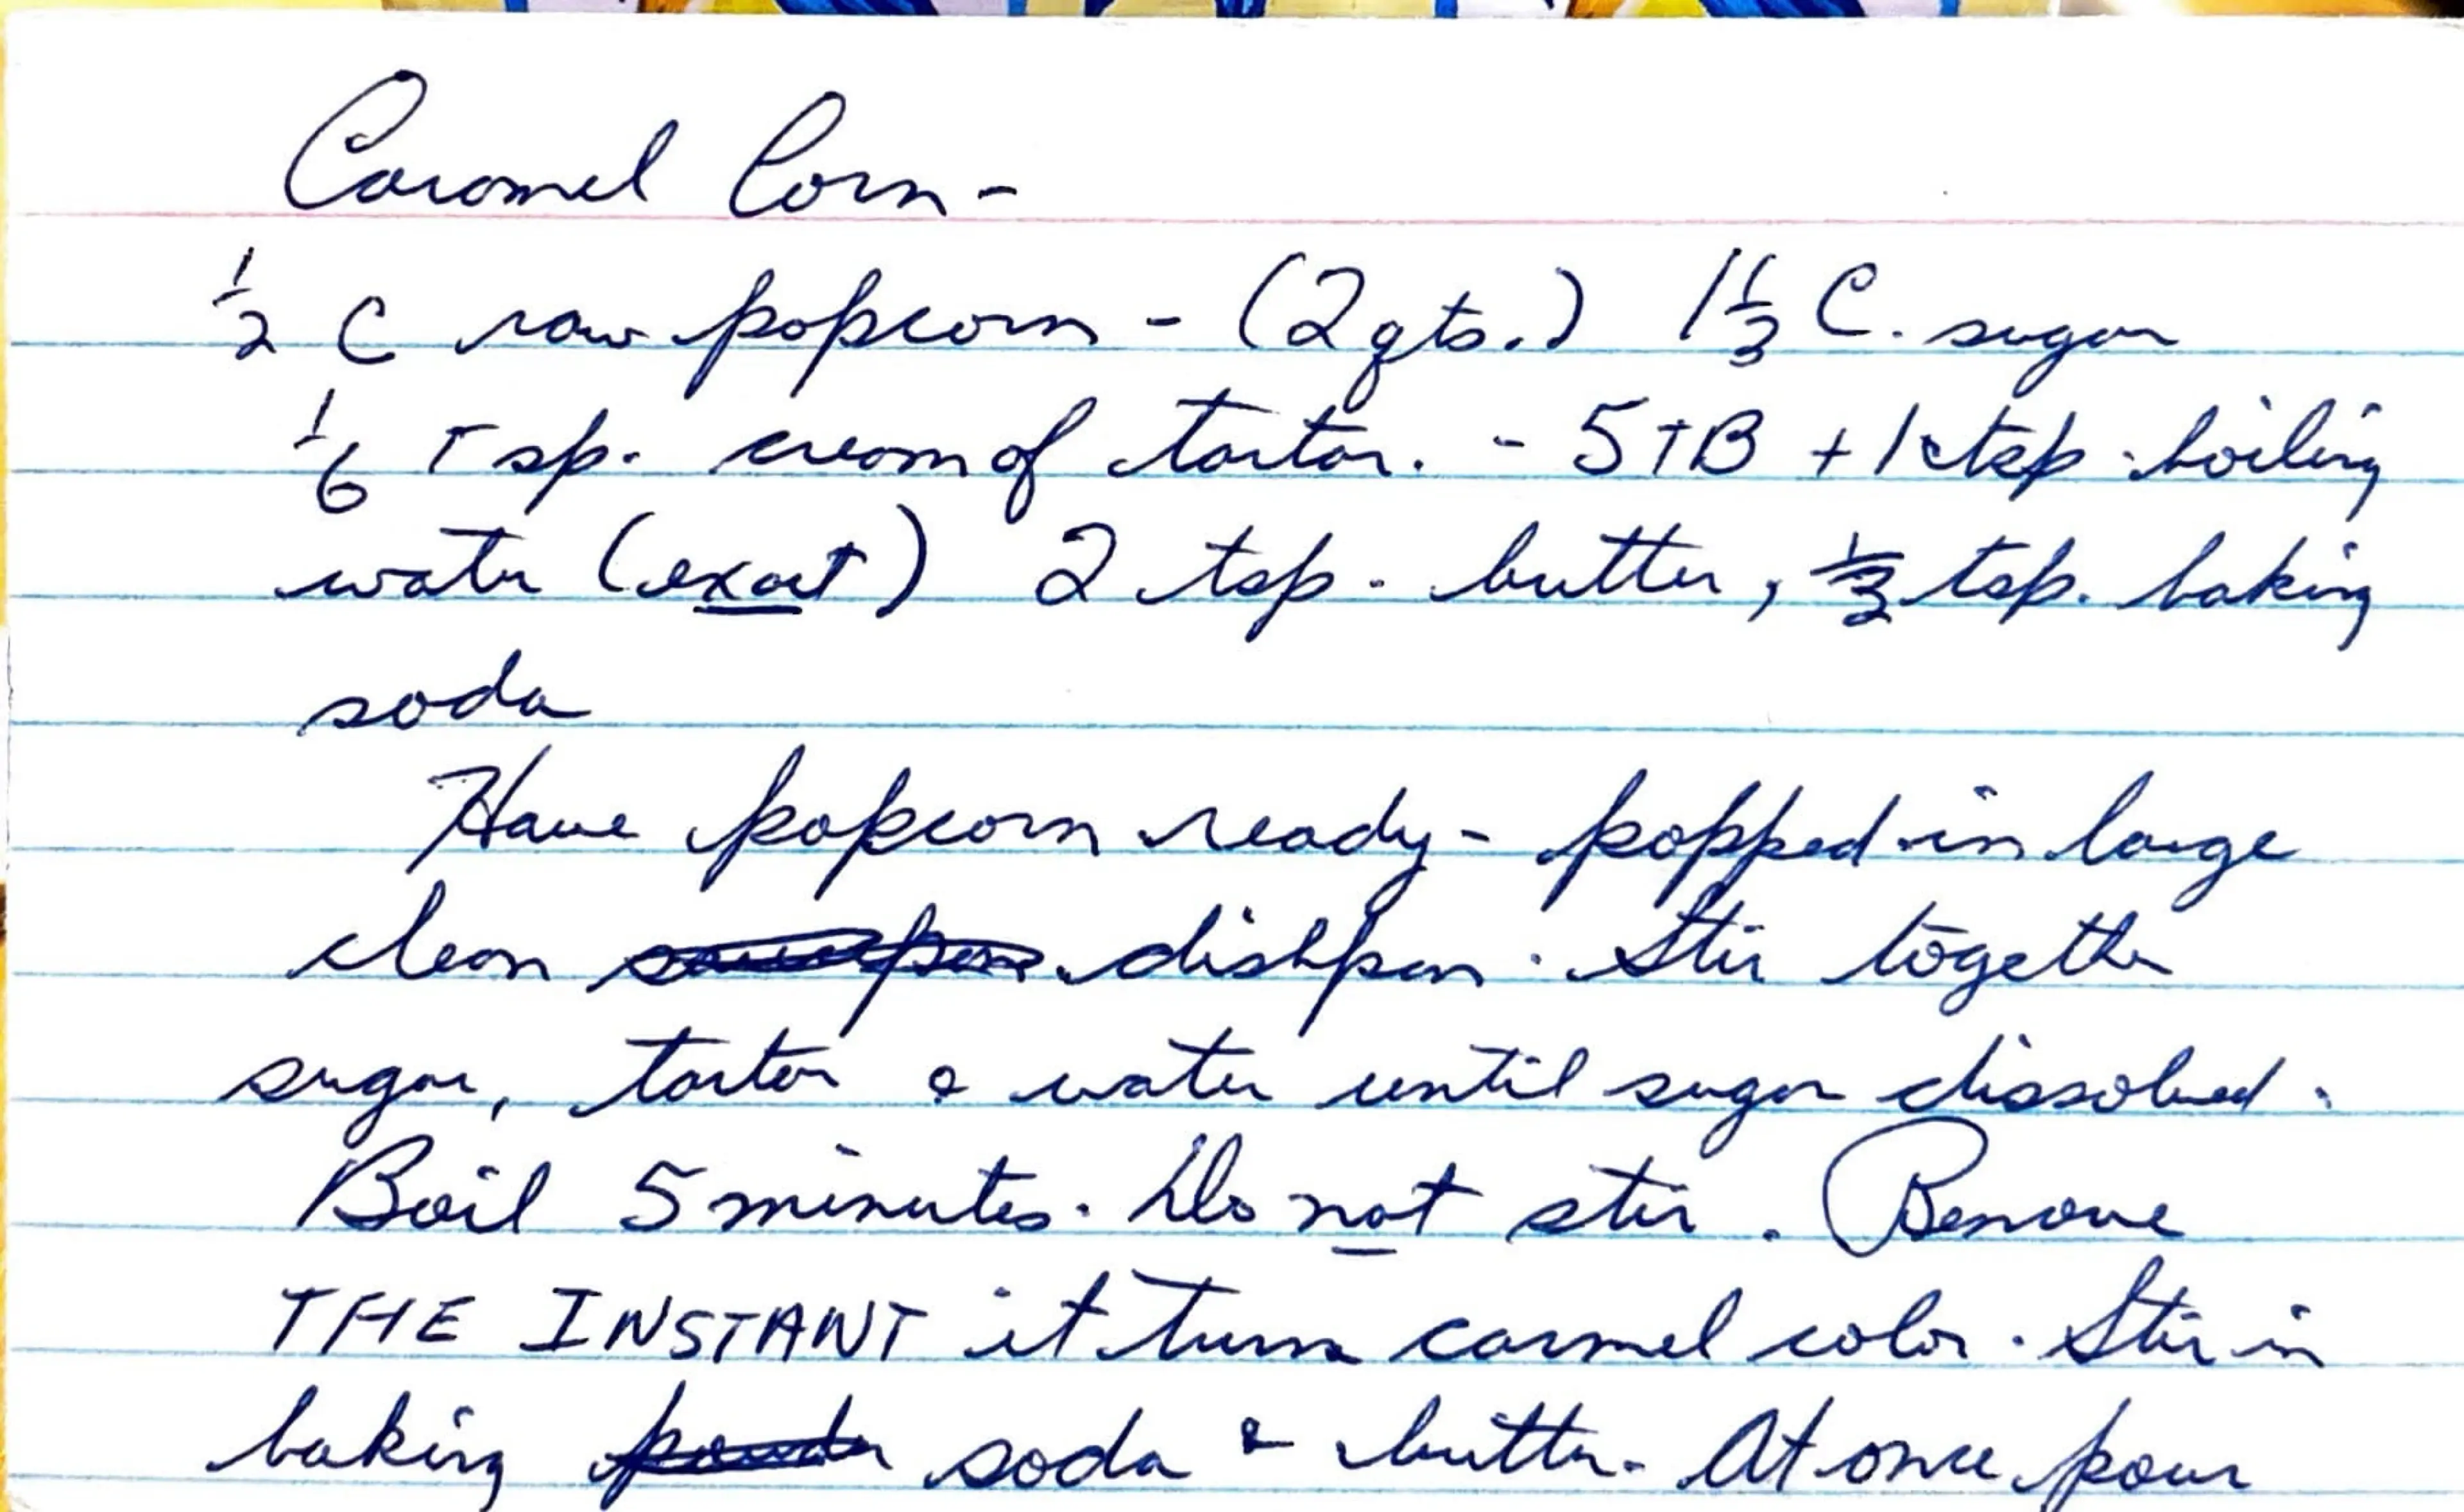 Caramel Corn -
½ C raw popcorn - (2 qts.) 1⅓ C. sugar
⅙ Tsp. cream of tartar. - 5 TB + 1 tsp boiling
water (exact) 2 tsp. butter, ⅓ tsp. baking
soda
Have popcorn ready - popped in large
clean saucepan dishpan. Stir together
sugar, tartar & water until sugar dissolved.
Boil 5 minutes. Do not stir. Remove
THE INSTANT it turns carmel color. Stir in
baking powder soda & butter. At once pour